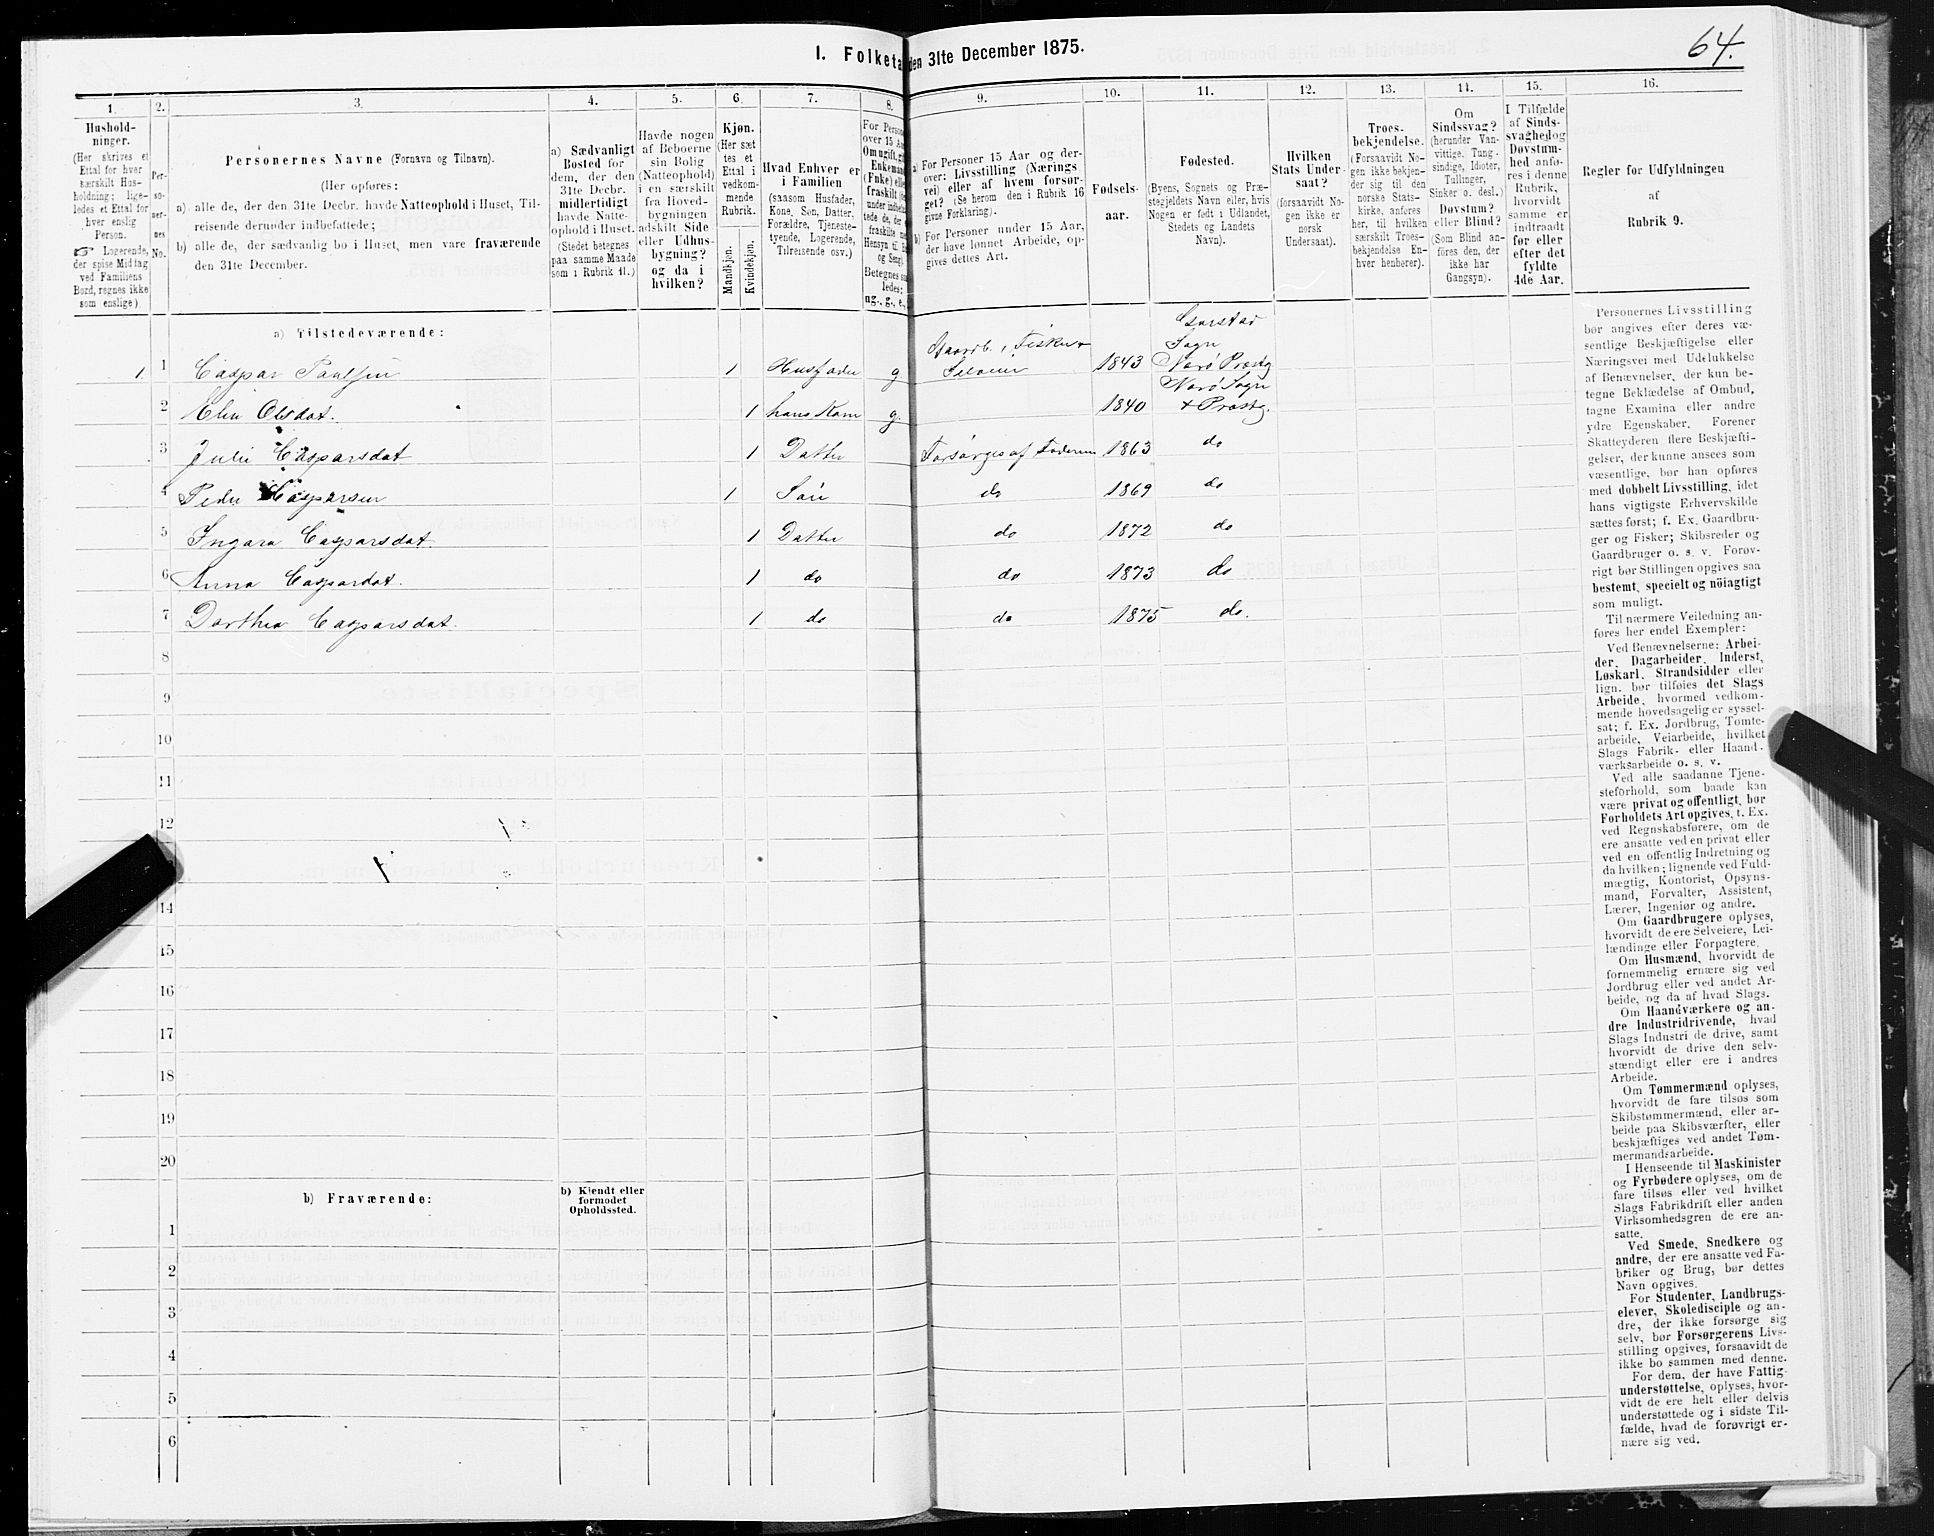 64.
I. Folketa
den 31te December 1875.
1.
2.
3.
4.
5.
6
7.
8.
9.
10.
11.
12.
13.
14.
15.
16.
Hushold-
ninger.
(Her skrives et
Ettal for hver
særskilt Hus-
holdning; lige-
ledes et Ettal for
hver enslig
Person.
☞ Logerende,
der spise Midtag
ved Familiens
Bord, regnes ikke
som enslige)
Per-
so-
ner-
nes
No.
Personernes Navne (Fornavn og Tilnavn).
(Her opføres:
a) alle de, der den 31te Decbr. havde Natteophold i Huset, Til-
reisende derunder indbefattede;
b) alle de, der sædvanlig bo i Huset, men vare fraværende
den 31te December.
a) Sædvanligt
Bosted for
dem, der den
31te Decbr.
midlertidigt
havde Natte-
ophold i Huset.
(Stedet betegnes
paa samme Maade
som i Rubrik 11.)
Havde nogen
af Beboerne
sin Bolig
(Natteophold)
i en særskilt
fra Hoved-
bygningen
adskilt Side
eller Udhus-
bygning?
og da i
hvilken?
Kjøn.
(Her sæt
tes et
Ettal i
vedkom-
mende
Rubrik.
Mandkjøn.
Kvindekjøn.
Hvad Enhver er
i Familien
(saasom Husfader,
Kone, Søn, Datter,
Forældre, Tjeneste-
tyende, Logerende,
Tilreisende osv.)
For Person
over 15 Aa
Om ugift, gi
Enkeman
(Enke) elle
fraskilt (he
under indbe
tede de, der
fraskilte m
Hensyn til
og Seng).
Betegnes saa
ledes:
ug., g., e.,
a) For Personer 15 Aar og der-
over: Livsstilling (Nærings
vei) eller af hvem forsør-
get? (Se herom den i Rubrik 16
givne Forklaring).
b) For Personer under 15 Aar,
der have lønnet Arbeide, op-
gives dettes Art.
Fødsels-
aar.
Fødested.
(Byens, Sognets og Præ-
stegjeldets Navn eller, hvis
Nogen er født i Udlandet,
Stedets og Landets
Navn).
Hvilken
Stats Under-
saat?
(forsaavidt No-
gen ikke er
norsk
Undersaat).
Troes-
bekjendelse.
(Forsaavidt No-
gen ikke bekjen-
der sig til den
norske Stats-
kirke, anføres
her, til hvilken
særskilt Troes-
bekjendelse En-
hver henhører).
Om
Sindssvag?
(herunder Van-
vittige, Tung-
sindige, Idioter,
Tullinger,
Sinker o. desl.)
Døvstum?
eller Blind?
(Som Blind an-
føres den, der
ikke har
Gangsyn).
I Tilfælde
af Sinds-
svaghed og
Døvstum-
hed anfø-
res i denne
Rubrik,
hvorvidt
samme er
indtraadt
før eller
efter det
fyldte
4de Aar.
Regler for Udfyldningen
af
Rubrik 9.
a) Tilstedeværende:
1. 1 Caspar Paulsen 1 Husfader g Gaardb., Fisker + Selveier 1843 Sogn Narø Præstg
2 Elen Olsdat. 1 hans Kone g. 1840 Narø Sogn + Præstg.
3 Julie Caspersdat 1 Datter Forsørges af Faderen 1863 do
4 Peder Caspersen 1 Søn do 1869 do
5 Ingara Caspersdat. 1 Datter do 1872 do
6 Anna Casperdat. 1 do do 1873 do
7 Dorthea Caspersdat. 1 do do 1875 do.
8
9
10
11
12
14
15
16
17
18
19
20
b) Fraværende:
b) Kjendt eller
formodet
Opholdssted.
1
2
3
4
5
6
Personernes Livsstilling
bør angives efter deres væ-
sentlige Beskjæftigelse eller
Næringsvei med Udelukkelse
af Benævnelser, der kun be-
tegne Beklædelse af Ombud,
tagne Examina eller andre
ydre Egenskaber. Forener
Skatteyderen flere Beskjæfti-
gelser, der kunne ansees som
væsentlige, bør han opføres
med dobbelt Livsstilling, idet
hans vigtigste Erhvervskilde
sættes først; f. Ex. Gaardbru-
ger og Fisker; Skibsreder og
Gaardbruger o. s. v. Forøv-
rigt bør Stillingen opgives saa
bestemt, specielt og nöiagtigt
som muligt.
Til nærmere Veiledning an-
føres her endel Exempler:
Ved Benævnelserne: Arbei-
der, Dagarbeider, Inderst,
Løskarl, Strandsidder eller
lign. bør tilføies det Slags
Arbeide, hvormed vedkom-
mende hovedsagelig er syssel-
sat; f. Ex. Jordbrug, Tomte-
arbeide, Veiarbeide, hvilket
Slags Fabrik- eller Haand-
værksarbeide o. s. v.
Ved alle saadanne Tjene-
steforhold, som baade kan
være privat og offentligt, bør
Forholdets Art opgives, t. Ex.
ved Regnskabsførere, om de
ere ansatte ved en privat eller
ved en offentlig Indretning og
da hvilken; lignende ved Fuld-
mægtig, Kontorist, Opsyns-
mand, Forvalter, Assistent,
Lærer, Ingeniør og andre.
Om Gaardbrugere oplyses,
hvorvidt de ere Selveiere, Lei-
lændinge eller Forpagtere.
Om Husmænd, hvorvidt de
fornemmelig ernære sig ved
Jordbrug eller ved andet Ar-
beide, og da af hvad Slags.
Om Haandværkere og an-
dre Industridrivende, hvad
Slags Industri de drive, samt
hvorvidt de drive den selv-
stændigt eller ere i andres
Arbeide.
Om Tømmermænd oplyses,
hvorvidt de fare tilsøs som
Skibstømmermænd, eller ar-
beide paa Skibsværfter, eller
beskjæftiges ved andet Tøm-
mermandsarbeide.
I Henseende til Maskinister
og Fyrbødere oplyses, om de
fare tilsøs eller ved hvilket
Slags Fabrikdrift eller anden
Virksomhedsgren de ere an-
satte.
Ved Smede, Snedkere og
andre, der ere ansatte ved Fa-
briker og Brug, bør dettes
Navn opgives.
For Studenter, Landbrugs-
elever, Skoledisciple og an-
dre, der ikke forsørge sig
selv, bør Forsørgerens Livs-
stilling opgives, forsaavidt de
ikke bo sammen med denne.
For dem, der have Fattig-
understøttelse, oplyses, hvor-
vidt de ere helt eller delvis
understøttede og i sidste Til-
fælde, hvad de forøvrigt er-
nære sig ved.